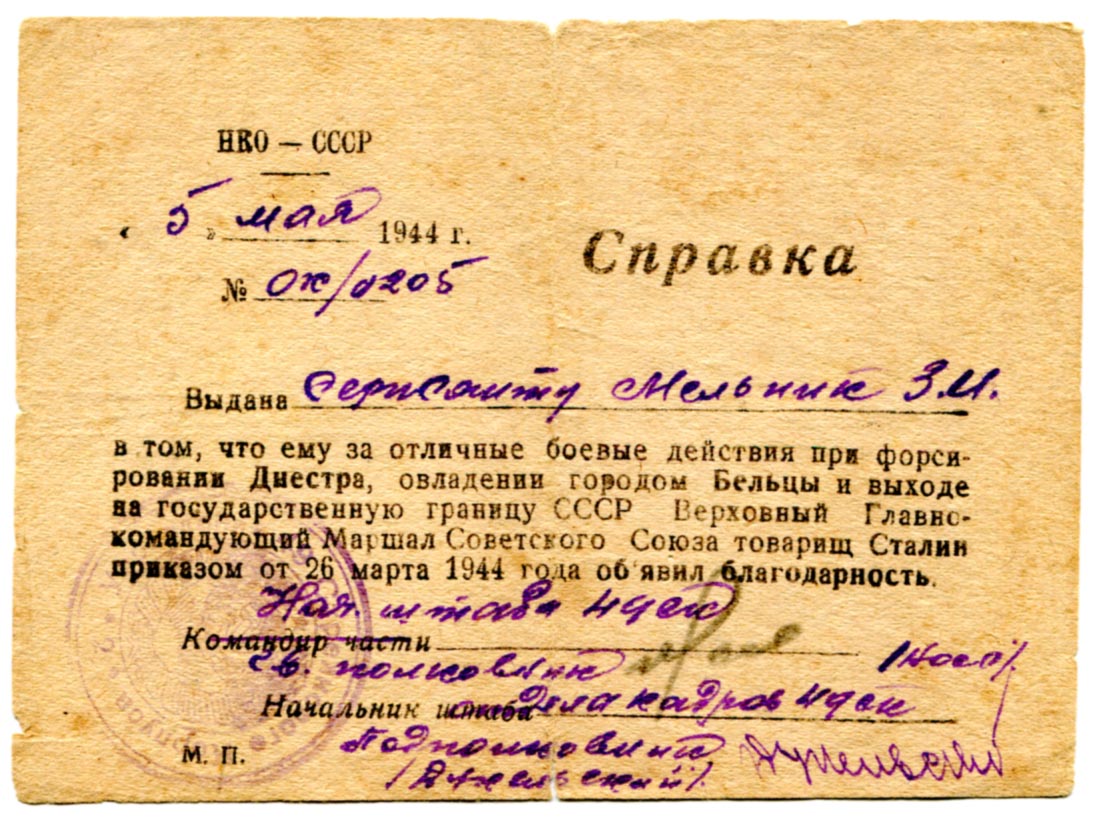 НКО — СССР
« 5 » мая 1944 г.
№ ож/0205
Справка
Выдана сержанту Мельник З.И.
в том, что ему за отличные боевые действия при форси-
ровании Днестра, овладении городом Бельцы и выходе
на государственную границу СССР Верховный Главно-
командующий Маршал Советского Союза товарищ Сталин
приказом от 26 марта 1944 года об'явил благодарность.
Нач. штаба 49ск
Командир части
Гв. полковник
Начальник штаба дела кадров 49ск
М. П. Подполковник